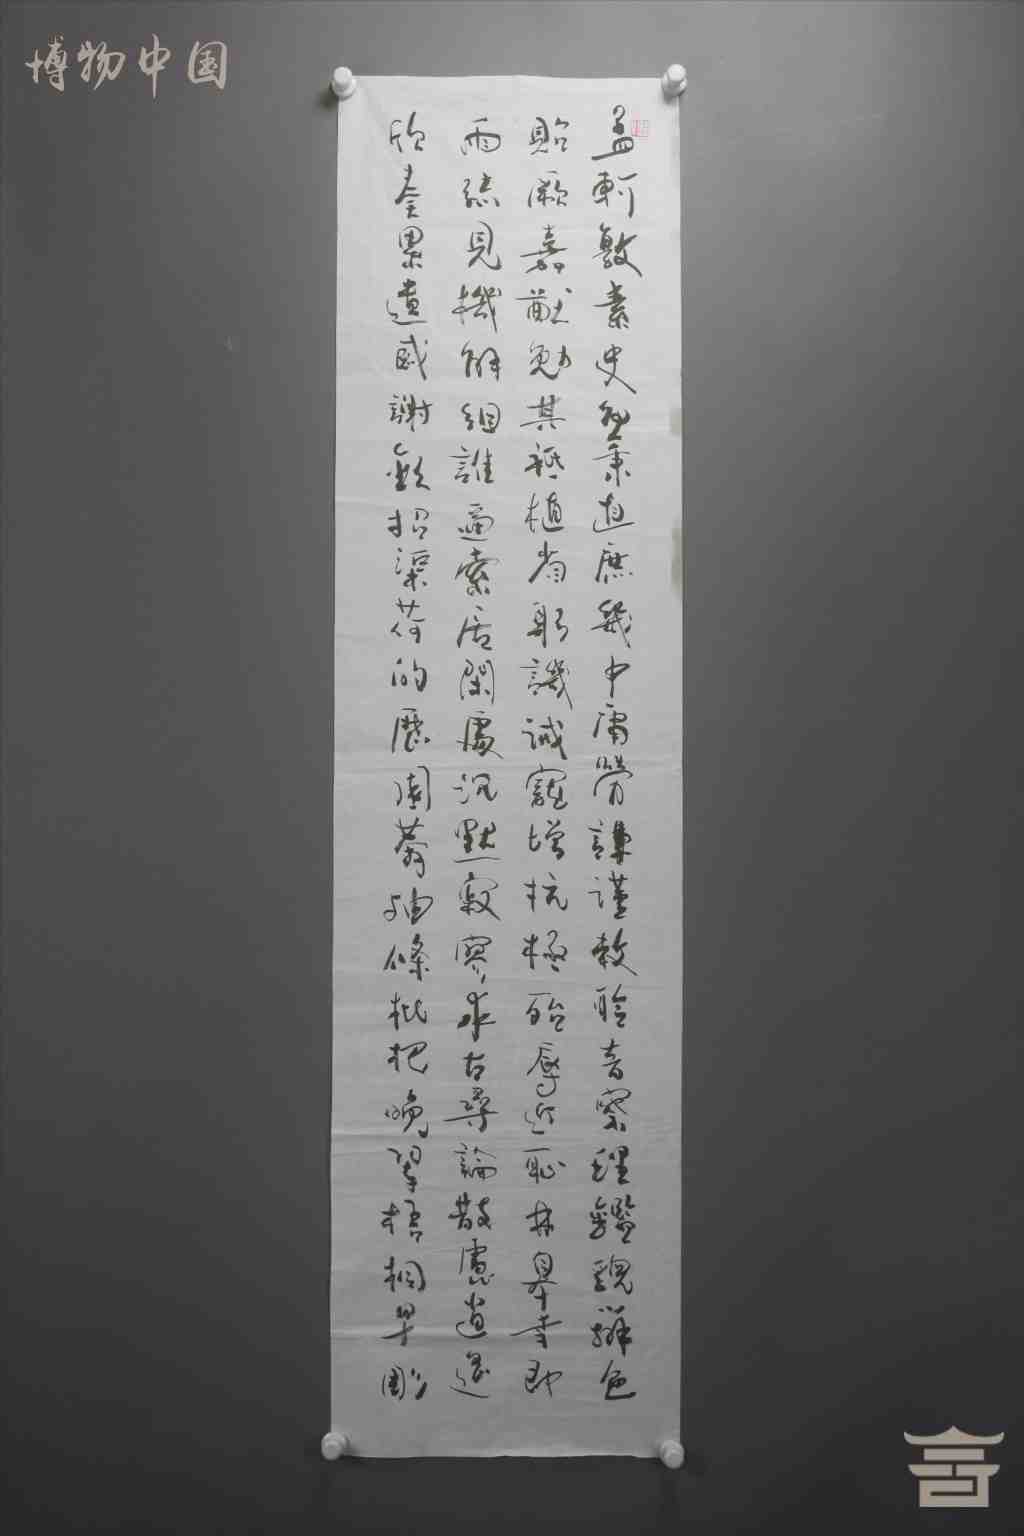 博物中国
孟軻敦素史魚秉直庶幾中庸勞謙謹敕聆音察理鑑貌辨色
貽厥嘉猷勉其祗植省躬譏誡寵增抗極殆辱近恥林皋幸即
兩疏見機解組誰逼索居閑處沉默寂寥求古尋論散慮逍遙
欣奏累遣慼謝歡招渠荷的歷園莽抽條枇杷晚翠梧桐早凋